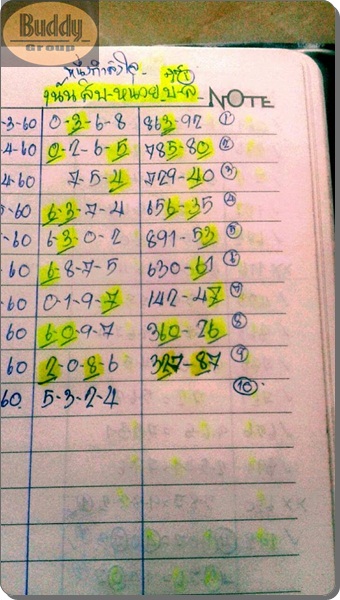 Buddy
Group
หนึ่งกำลังใจ
เน้นสิบ-หน่วย บ-ล NOTE
-3-60 0-3-6-8 863-92 ①
-4-60 0-2-6-5 785-80 ②
4-60 7-5-4 729-40 ③
-60 6-3-7-4 656-35 ④
-60 6-3-0-2 891-53 ⑤
-60 6-8-7-5 630-61 ⑥
-60 0-1-9-7 142-47 ⑦
60 6-0-9-7 360-26 ⑧
60 2-0-8-6 327-87 ⑨
60 5-3-2-4 ⑩